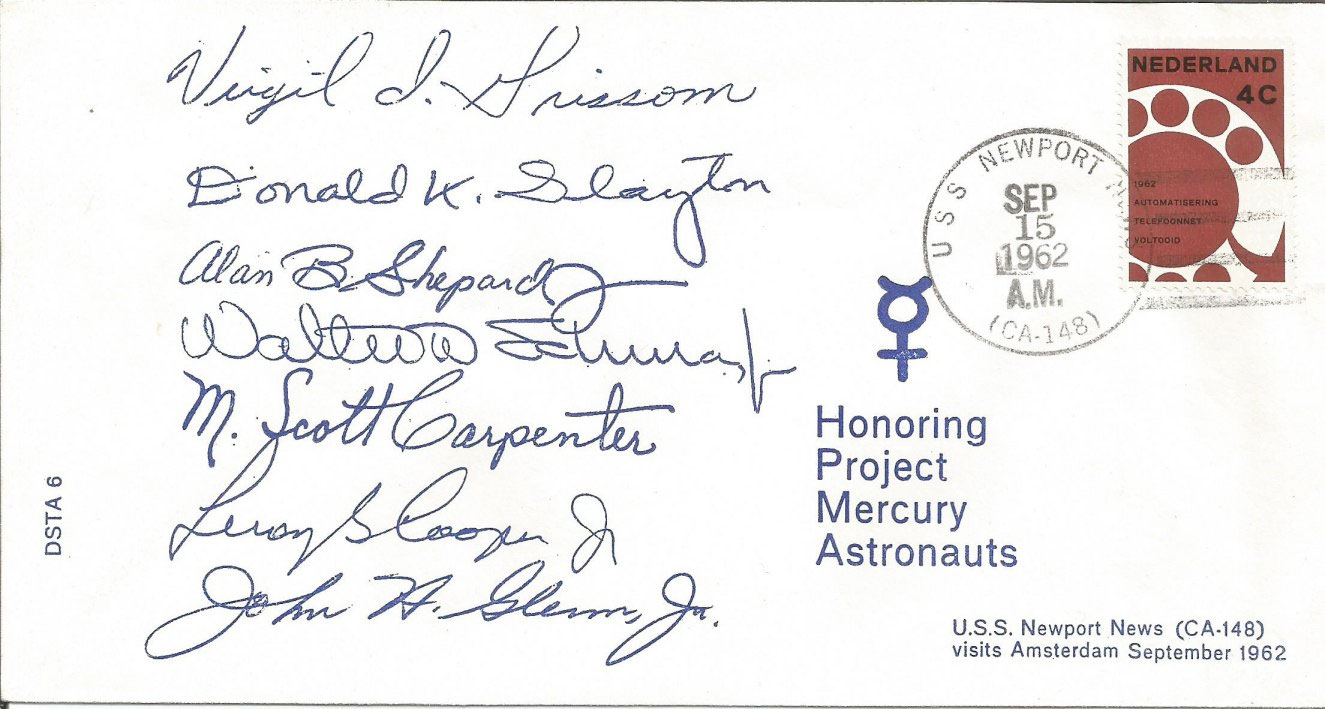 Virgil I. Grissom
Donald K. Slayton
Alan B. Shepard Jr
Walter M Schirra, Jr
M. Scott Carpenter
Leroy G Cooper Jr
John H. Glenn, Jr.
DSTA 6
NEDERLAND
4C
1962
AUTOMATISERING
TELEFOONNET
VOLTOOID
USS NEWPORT NEWS
SEP
15
1962
A.M.
(CA-148)
Honoring
Project
Mercury
Astronauts
U.S.S. Newport News (CA-148)
visits Amsterdam September 1962